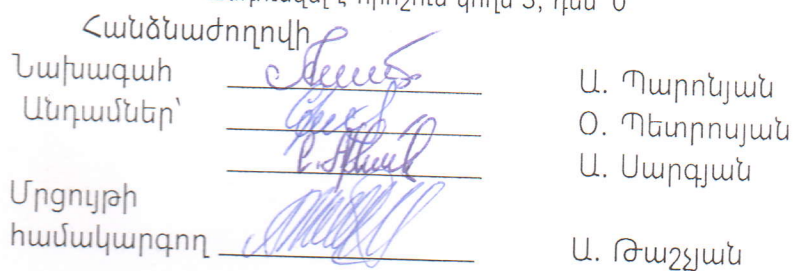 է որոշում կողմ 5, դեմ 0
Հանձնաժողովի
Նախագահ Ա. Պարոնյան
Անդամներ՝ Օ. Պետրոսյան
Ա. Սարգյան
Մրցույթի
համակարգող Ա. Թաշչյան